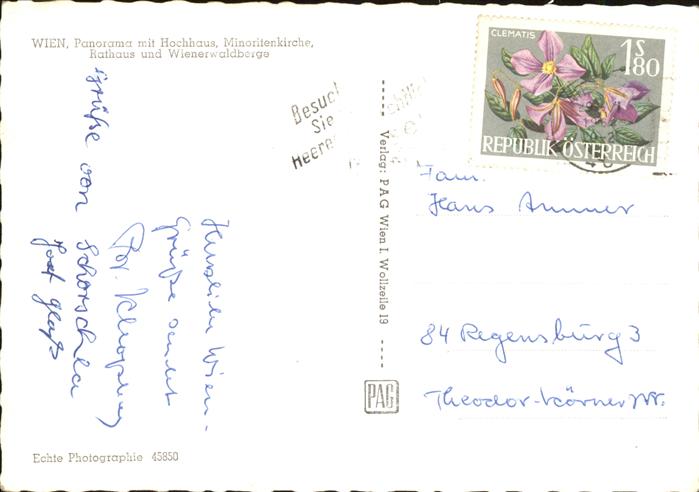 WIEN, Panorama mit Hochhaus, Minoritenkirche,
Rathaus und Wienerwaldberge
CLEMATIS
1S80
REPUBLIK ÖSTERREICH
Besuch
Sie
Heere
Verlag: PAG Wien I, Wollzeile 19
PAG
Fam.
Hans
84 Regensburg 3
Theodor-Körner
Herzliche Wien-
Grüße sendet
Grüße von Schorschla
Josef
Echte Photographie 45850